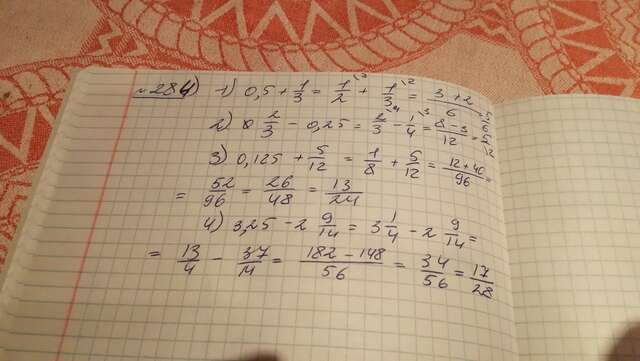 №284) 1) 0,5 + 1/3 = 1/2 + 1/3 = 3+2/6 = 5/6
2) 2/3 - 0,25 = 2/3 - 1/4 = 8-3/12 = 5/12
3) 0,125 + 5/12 = 1/8 + 5/12 = 12+40/96 =
= 52/96 = 26/48 = 13/24
4) 3,25 - 2 9/14 = 3 1/4 - 2 9/14 =
= 13/4 - 37/14 = 182-148/56 = 34/56 = 17/28